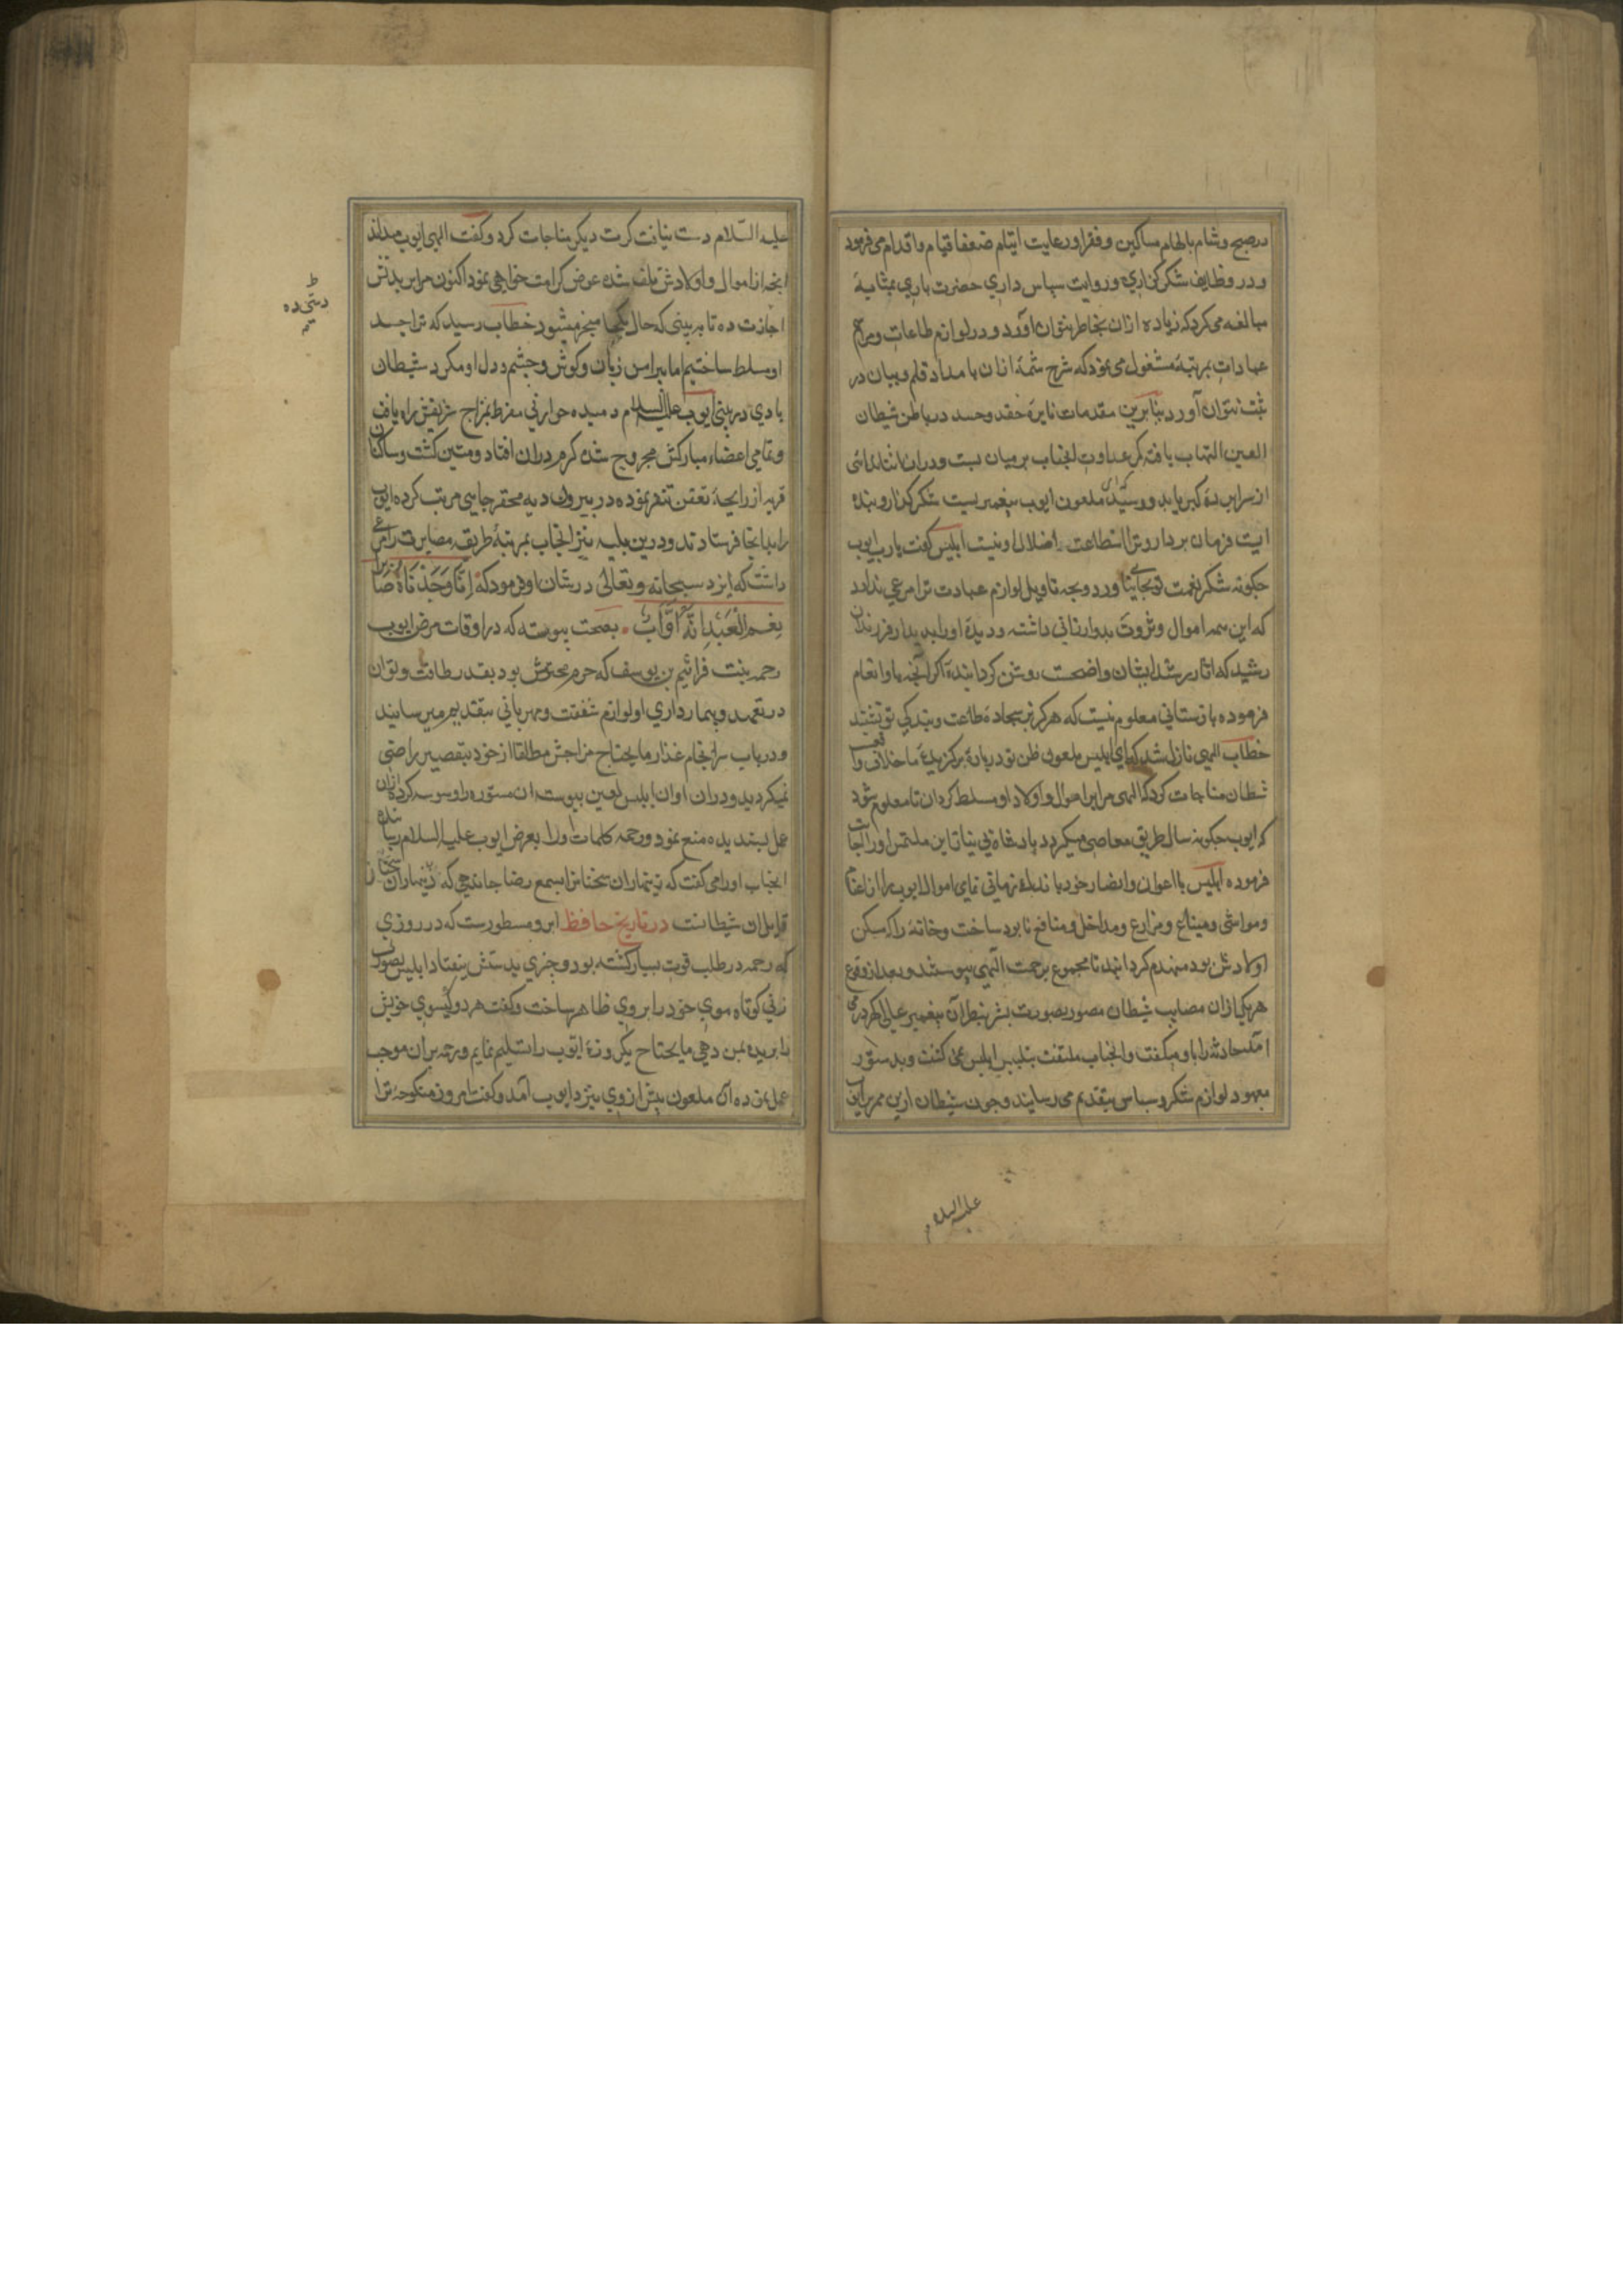 در صبح و شام باطعام مساکین و فقرا و رعایت ایتام ضعفا قیام و اقدام می فرمود
و در وظایف شکر گزاری و روایت سپاس داری حضرت باری بمثابهٔ
مبالغه می کرد که زیاده ازان بخاطر نتوان آورد و در لوازم طاعات و مراسم
عبادات بمرتبهٔ مشغول می نمود که شرح شمهٔ ازان بامداد قلم و بیان در
نتوان آورد بنابرین مقدمات نایرهٔ حقد و حسد در باطن شیطان
العین التهاب یافته کمر عداوت انجناب بر میان بست و دران اثنا ندائی
از سرا کبریا بدو رسید ملعون ایوب پیغمبریست شکر گذار و بنده
ایست فرمان بردار و ترا استطاعت اضلال او نیست ابلیس گفت یا رب ایوب
چگونه شکر نعمت تو بجای نیاورد و بچه تاویل لوازم عبادت ترا مرعی ندارد
که این همه اموال و ثروت بدو ارزانی داشته و دیدهٔ او را بدیدار فرزندان
رشید که اثار رشد ایشان واضحست روشن کردانیدهٔ اگر آنچه باو انعام
فرموده بازستانی معلوم نیست که هرکز بر سجادهٔ طاعت و بندکی تو نشیند
خطاب الهی نازل شد که ای ابلیس ملعون ظن تو دربارهٔ برکزیدهٔ ما خلاف واقعست
شیطان مناجات کرد که الهی مرا بر اموال و اولاد او مسلط کردان تا معلوم شود
که ایوب چگونه سالک طریق معاصی میکردد پادشاه بی نیاز این ملتمس او را اجابت
فرموده ابلیس با اعوان و انصار خود باندک زمانی تمامی اموال ایوب را از اغنام
و مواشی و ضیاع و مزارع و مداخل و منافع نابود ساخت و خانهٔ را که مسکن
اولادش بود منهدم کردانید تا مجموع برحمت الهی پیوستند و بعد از وقوع
هر یک ازان مصایب شیطان مصور بصورت بشر بنظر آن پیغمبر عالی کهر در می
امد حادثه را باو میکفت و انجناب ملتفت بتلبیس ابلیس نمی کشت و بدستور
معهود لوازم شکر و سپاس بتقدیم می رسانید و چون شیطان ازین ممر بر ایوب
علیه السلام
علیه السلام دست نیافت کرت دیکر مناجات کرد و گفت الهی ایوب میداند
انچه از اموال و اولادش تلف شده عوض کرامت خواهی نمود اکنون مرا بر بدنش
دستی ده
اجازت ده تا ببینی که حال بکجا منجر میشود خطاب رسید که ترا بر جسد
او مسلط ساختیم اما پیرامن زبان و گوش و چشم و دل او مکرد شیطان
بادی در بینی ایوب علیه السلام دمیده حرارتی مفرط بمزاج شریفش راه یافت
و تمامی اعضاء مبارکش مجروح شده کرم دران افتاد و متین کشت و ساکنان
قریه از رایحه تعفن تنفر نموده در بیرون دیه محقر جایی مرتب کرده ایوب
را بدانجا فرستادند و درین بلیه نیز انجناب بمرتبهٔ طریقه مصابرت مرعی
داشت که ایزد سبحانه و تعالی در شان او فرمود که اِنَّا وَجَدْنَاهُ صَابِرًا
نِعْمَ الْعَبْدُ اِنَّهُ اَوَّابٌ بصحت پیوسته که در اوقات مرض ایوب
رحمه بنت فرائیم بن یوسف که حرم محترمش بود بقدر طاقت و توان
در تعهد و بیمارداری او لوازم شفقت و مهربانی بتقدیم میرسانید
و در باب سرانجام غذا و مایحتاج مزاجش مطلقا از خود بتقصیر راضی
نمیکردید و دران اوان ابلیس لعین پیوسته ان مستوره را وسوسه کرده ازان
عمل پسندیده منع نمود و رحمه کلمات او را بعرض ایوب علیه السلام رسانیده
انجناب او را می کفت که زینهار ان سخنانرا بسمع رضا جا ندهی که
قایل ان شیطانست در تاریخ حافظ ابرو مسطورست که در روزی
که رحمه در طلب قوت بسیار کشته بود و چیزی بدستش نیفتاد ابلیس بصورت
زنی کوتاه موی خود را بروی ظاهر ساخت و گفت هر دو کیسوی خویش
را بریده بمن دهی مایحتاج یکروزهٔ ایوب را تسلیم نمایم و رحمه بران موجب
عمل نموده آن ملعون پیش از وی نیز د ایوب آمد و کفت امروز منکوحه ترا